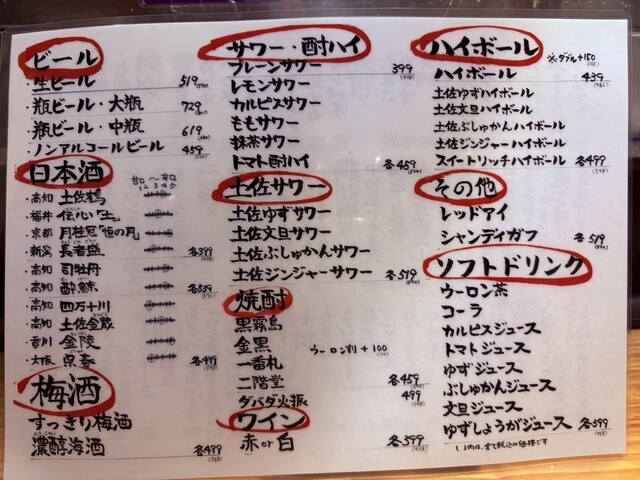 ビール
・生ビール 519
・瓶ビール・大瓶 729
・瓶ビール・中瓶 619
・ノンアルコールビール 459
日本酒
甘口〜辛口
1 2 3 4 5
・高知 土佐鶴
・福井 伝心「生」
・京都 月桂冠「恒の月」
・新潟 長者盛 各399
・高知 司牡丹
・高知 酔鯨 各539
・高知 四万十川
・高知 土佐金蔵
・香川 金陵
・大阪 呉春 各499
梅酒
すっきり梅酒
濃醇梅酒 各499
サワー・酎ハイ
プレーンサワー 399
レモンサワー
カルピスサワー
ももサワー
抹茶サワー
トマト酎ハイ 各459
土佐サワー
土佐ゆずサワー
土佐文旦サワー
土佐ぶしゅかんサワー
土佐ジンジャーサワー 各519
焼酎
黒霧島
金黒 ウーロン割+100
一番札
二階堂 各459
ダバダ火振 499
ワイン
赤or白 各399
ハイボール ※ダブル+150
ハイボール 439
土佐ゆずハイボール
土佐文旦ハイボール
土佐ぶしゅかんハイボール
土佐ジンジャーハイボール
スイートリッチハイボール 各499
その他
レッドアイ
シャンディガフ 各519
ソフトドリンク
ウーロン茶
コーラ
カルピスジュース
トマトジュース
ゆずジュース
ぶしゅかんジュース
文旦ジュース
ゆずしょうがジュース 各399
( )内は、全て税込み価格です